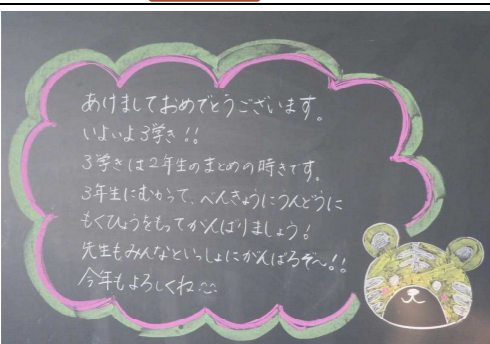 あけましておめでとうございます。
いよいよ3学き!!
3学きは2年生のまとめの時きです。
3年生にむかって、べんきょうにうんどうに
もくひょうをもってがんばりましょう!
先生もみんなといっしょにがんばるぞ〜!!
今年もよろしくね